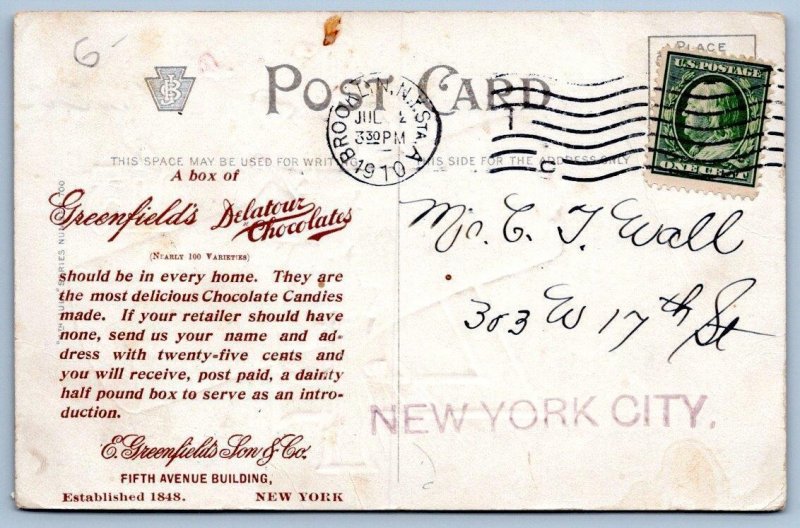 6-
PLACE
POST CARD
U.S. POSTAGE
ONE CENT
BROOKLYN, N.Y. STA. A
JUL 2
330 PM
1910
THIS SPACE MAY BE USED FOR THIS SIDE FOR THE ADDRESS ONLY
A box of
Greenfield's Delatour Chocolates
(NEARLY 100 VARIETIES)
should be in every home. They are
the most delicious Chocolate Candies
made. If your retailer should have
none, send us your name and ad-
dress with twenty-five cents and
you will receive, post paid, a dainty
half pound box to serve as an intro-
duction.
E. Greenfield's Son & Co.
FIFTH AVENUE BUILDING,
Established 1848. NEW YORK
C. T. Wall
303 W 17th St
NEW YORK CITY.